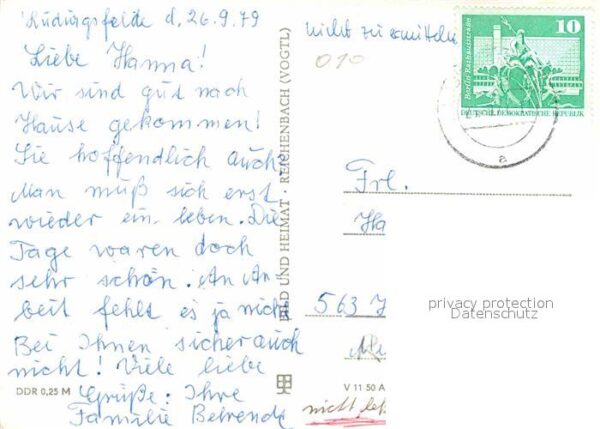 Rüdingsfelde d, 26.9.79
Liebe Hanna!
Wir sind gut nach
Hause gekommen!
Sie hoffendlich auch.
Man muß sich erst
wieder ein leben. Die
Tage waren doch
sehr schön. An Ar-
beit fehlt es ja nicht
Bei Ihnen sicher auch
nicht! Viele liebe
Grüße: Ihre
Familie Behrendt
DDR 0,25 M
BILD UND HEIMAT · REICHENBACH (VOGTL)
V 11 50 A
nicht zu ermitteln
010
10
Berlin, Rathausstraße
DEUTSCHE DEMOKRATISCHE REPUBLIK
a
Frl.
Ha
563
privacy protection
Datenschutz
nicht